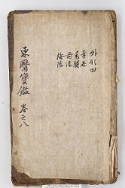 外形四
手足
毛髮
前陰
後陰
東醫寶鑑 卷之八